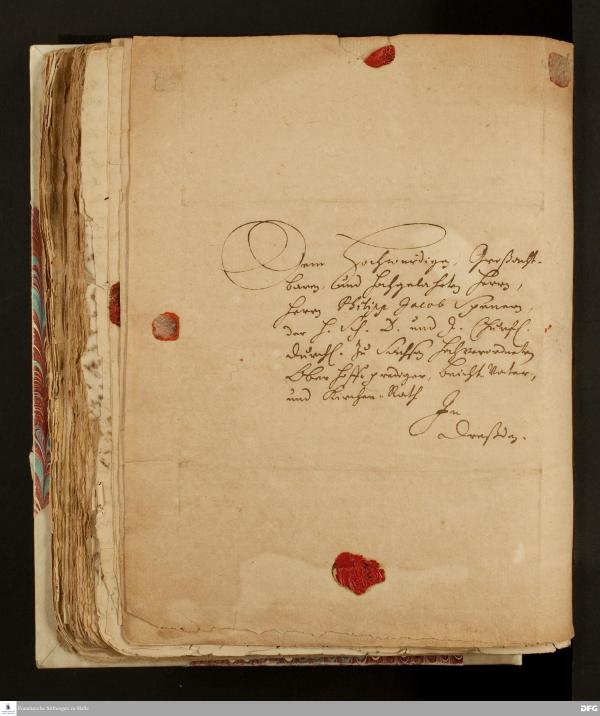 Dem Hochwürdigen, Großacht-
baren und Hochgelahrten Herrn,
Herrn Philipp Jacob Spenern,
der H. Sch. D. und J. Churfl.
Durchl. Zu Sachsen Hochverordneten
Ober Hoff-prediger, beicht Vater,
und Kirchen-Rath
In
Dreßden.
Franckesche Stiftungen zu Halle
DFG